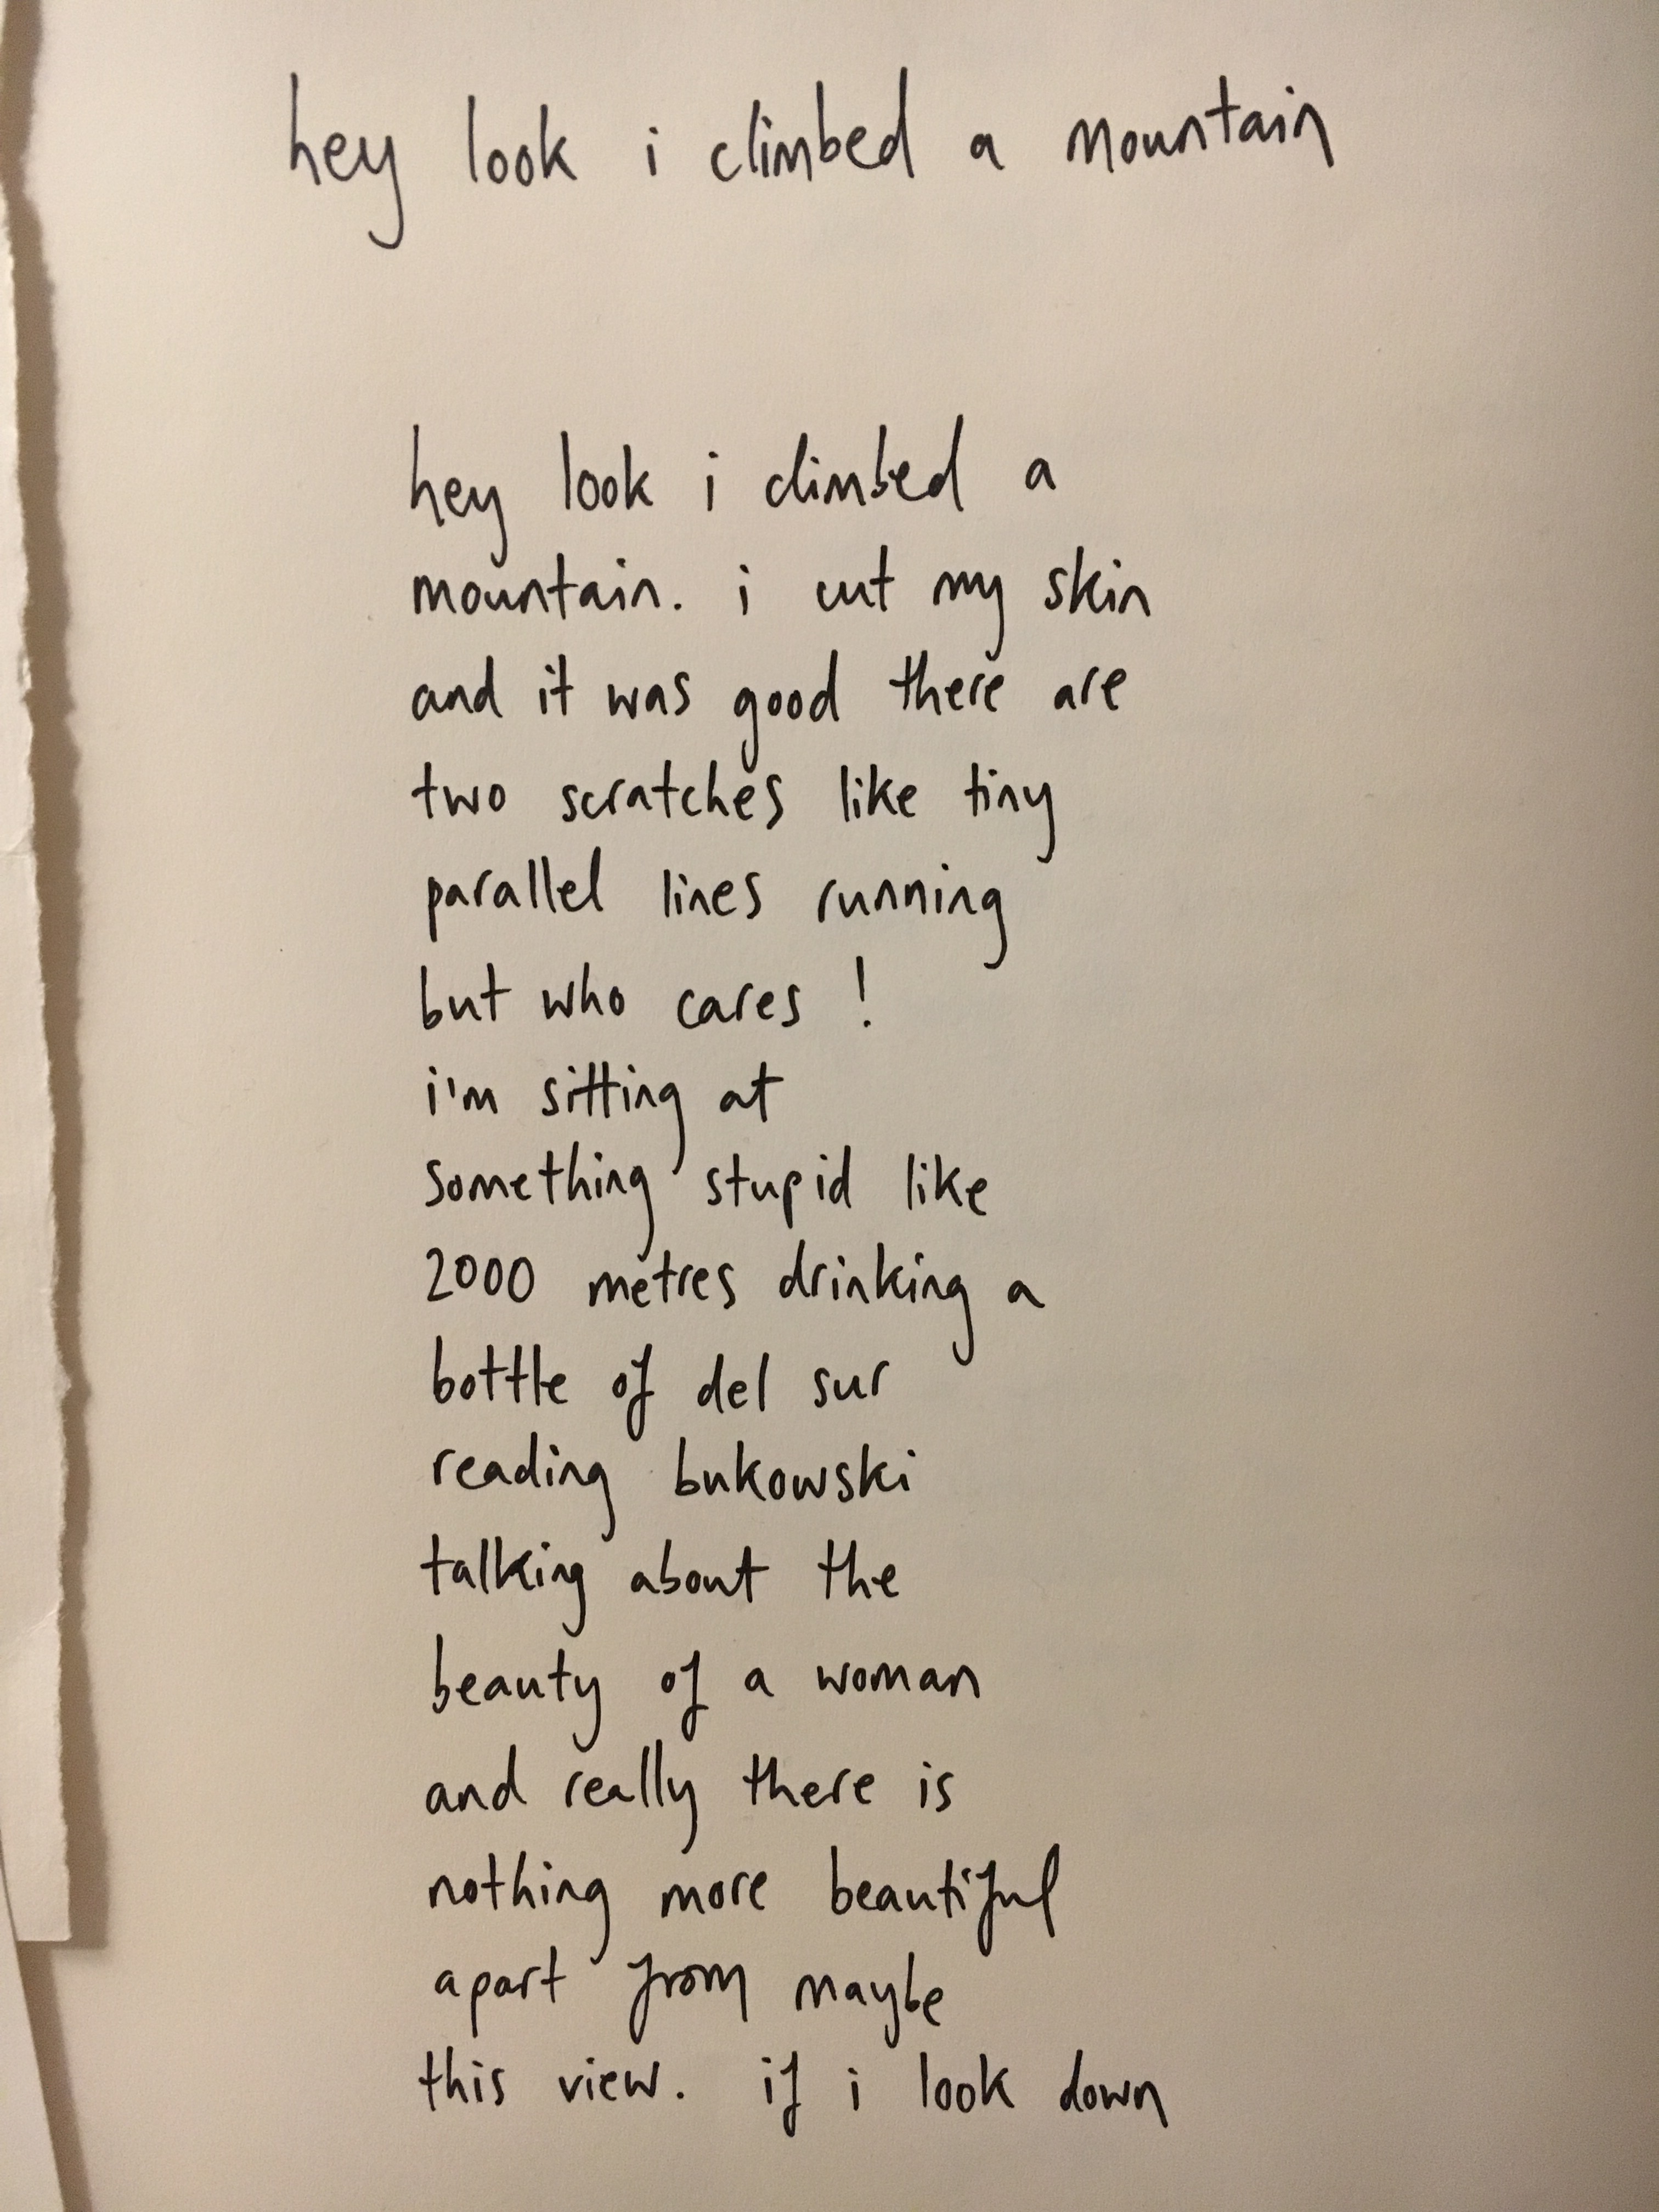 hey look i climbed a mountain
hey look i climbed a
mountain. i cut my skin
and it was good there are
two scratches like tiny
parallel lines running
but who cares !
i'm sitting at
something stupid like
2000 metres drinking a
bottle of del sur
reading bukowski
talking about the
beauty of a woman
and really there is
nothing more beautiful
apart from maybe
this view. if i look down